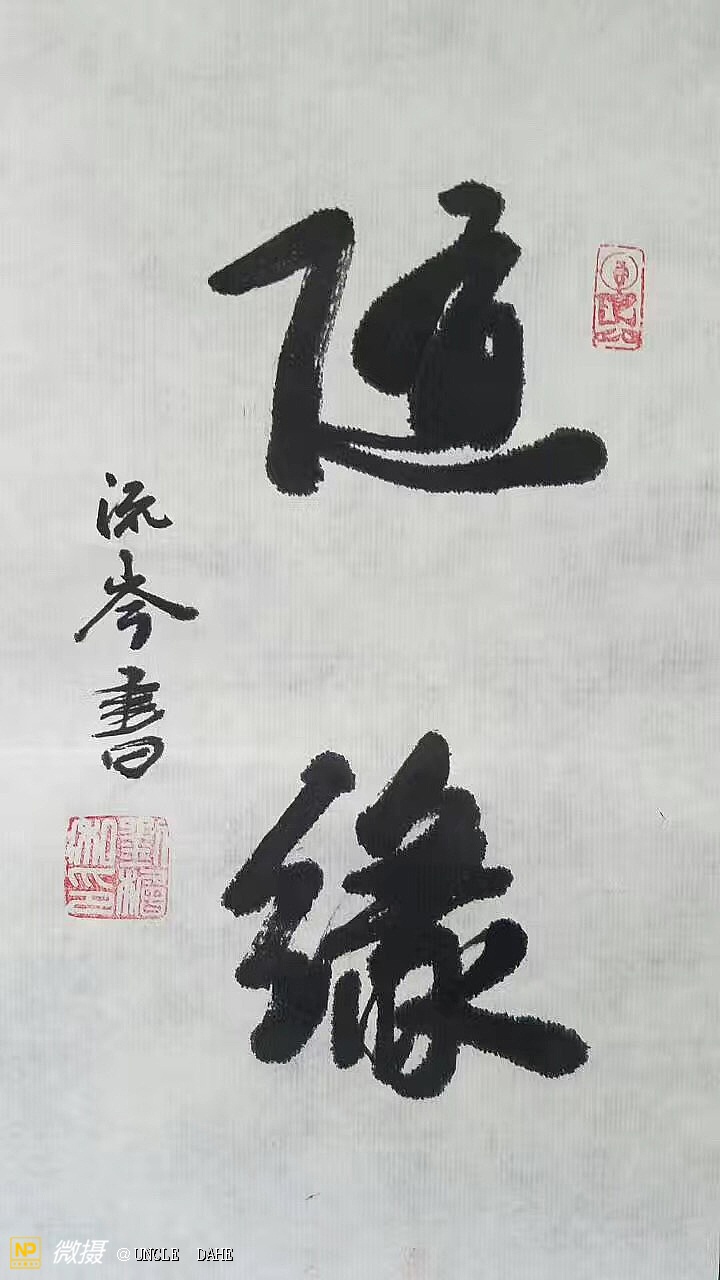 随缘
流岑書
NP 微摄 @UNCLE DAHE